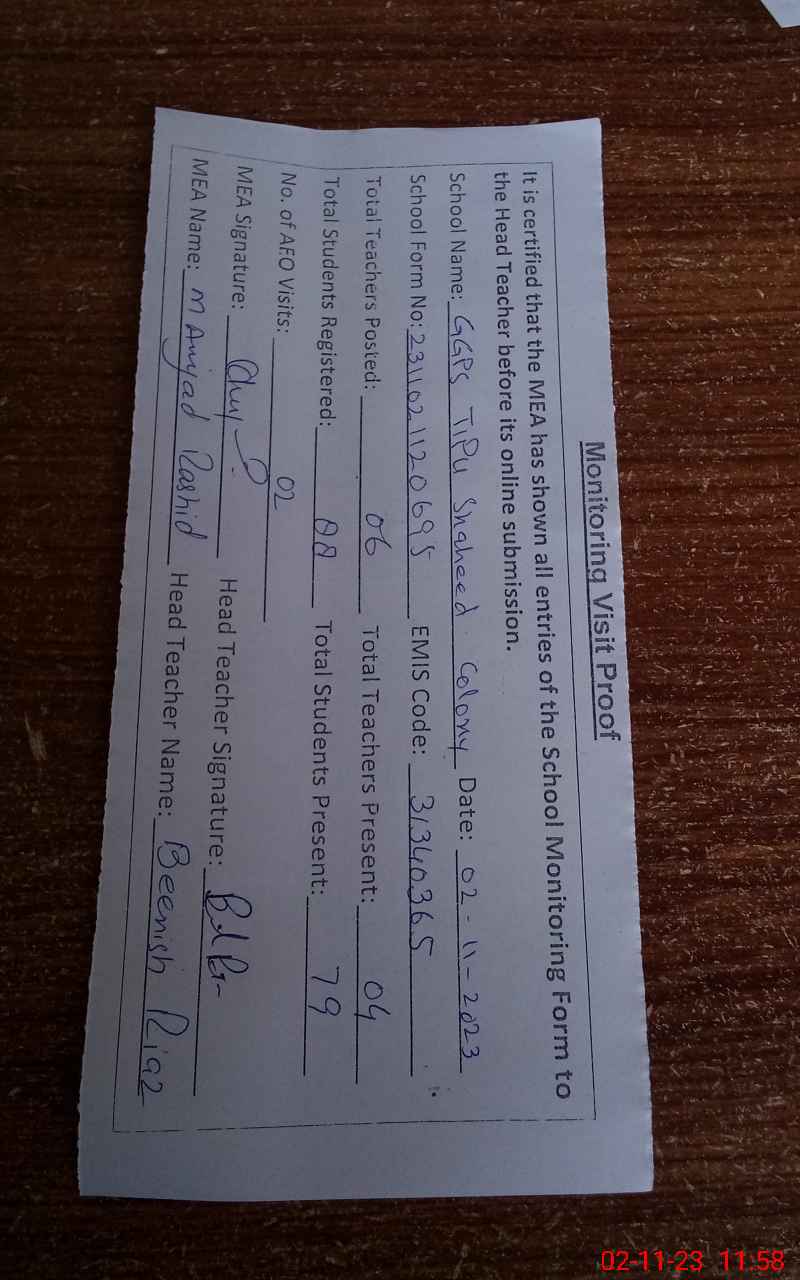 Monitoring Visit Proof
It is certified that the MEA has shown all entries of the School Monitoring Form to
the Head Teacher before its online submission.
School Name: GGPS TIPU Shaheed Colony Date: 02-11-2023
School Form No: 2311021120695 EMIS Code: 31340365
Total Teachers Posted: 06 Total Teachers Present: 04
Total Students Registered: Total Students Present: 79
No. of AEO Visits: 02
MEA Signature: Head Teacher Signature:
MEA Name: M Amjad Rashid Head Teacher Name: Beenish Riaz
02-11-23 11:58